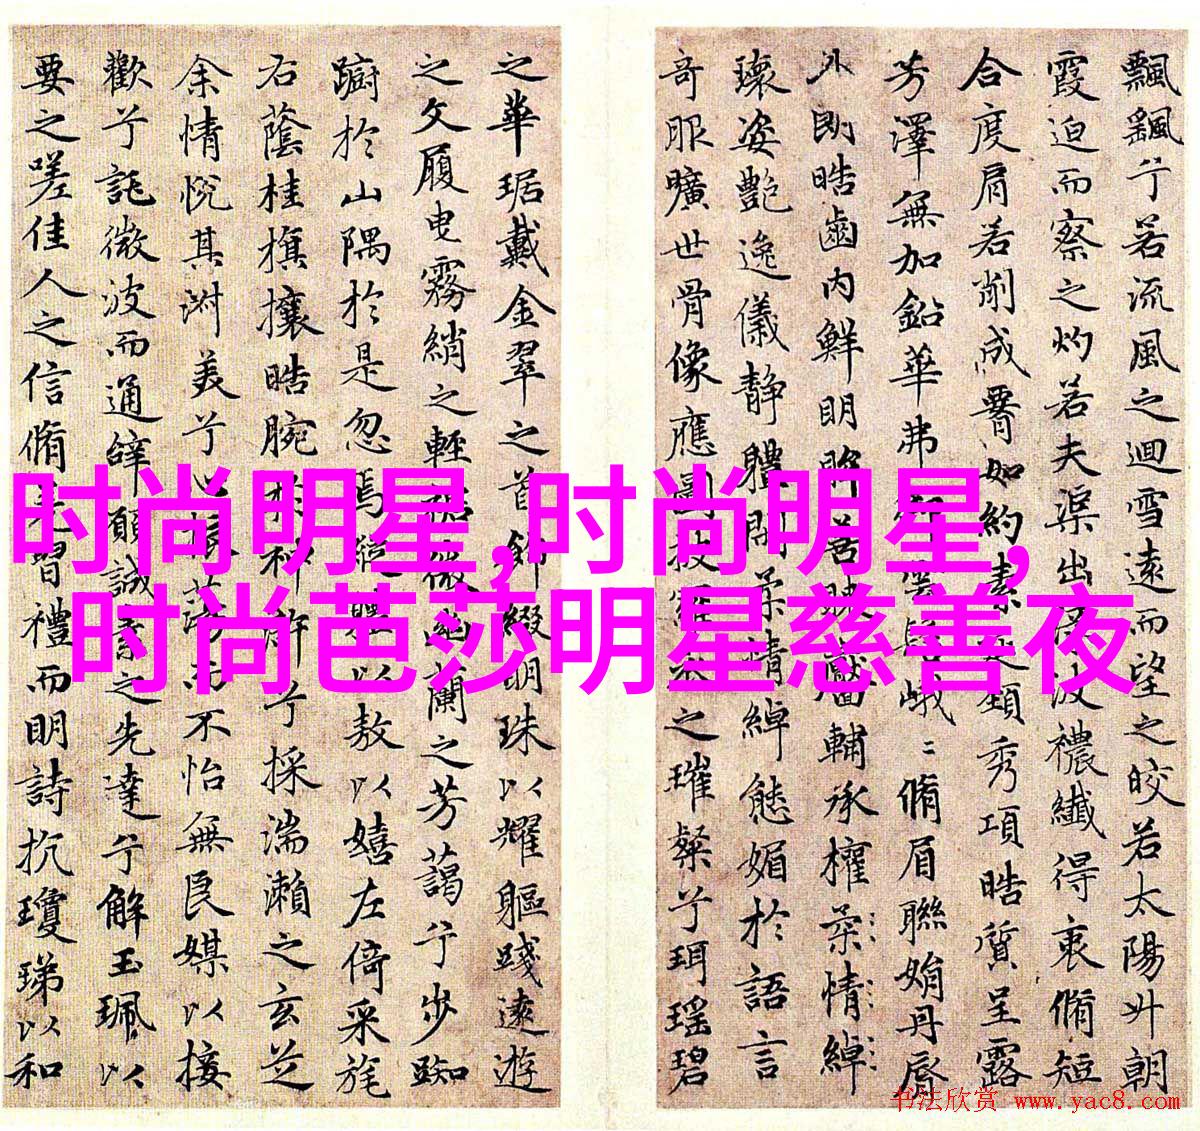 飄飖兮若流風之迴雪遠而望之皎若太陽升朝
霞迫而察之灼若夫渠出渌波襛纖得衷脩短
合度肩若削成腰如約素延頸秀項皓質呈露
芳澤無加鉛華弗御雲髻峨〻脩眉聯娟丹脣
外朗皓齒內鮮明眸善睞靨輔承權柔情綽
瓌姿艷逸儀靜體閑柔情綽態媚於語言
奇服曠世骨像應圖披羅衣之璀粲兮珥瑤碧
之華琚戴金翠之首飾綴明珠以耀軀踐遠遊
之文履曳霧綃之輕裾微幽蘭之芳藹兮步踟
躕於山隅於是忽焉縱體以敖以嬉左倚采旄
右蔭桂旗攘皓腕於神滸兮採湍瀨之玄芝
余情悅其淑美兮心振蕩而不怡無良媒以接
歡兮託微波而通辭願誠素之先達兮解玉珮以
要之嗟佳人之信脩羌習禮而明詩抗瓊珶以和
时尚明星,时尚明星,
时尚芭莎明星慈善夜
书法欣赏 www.yac8.com